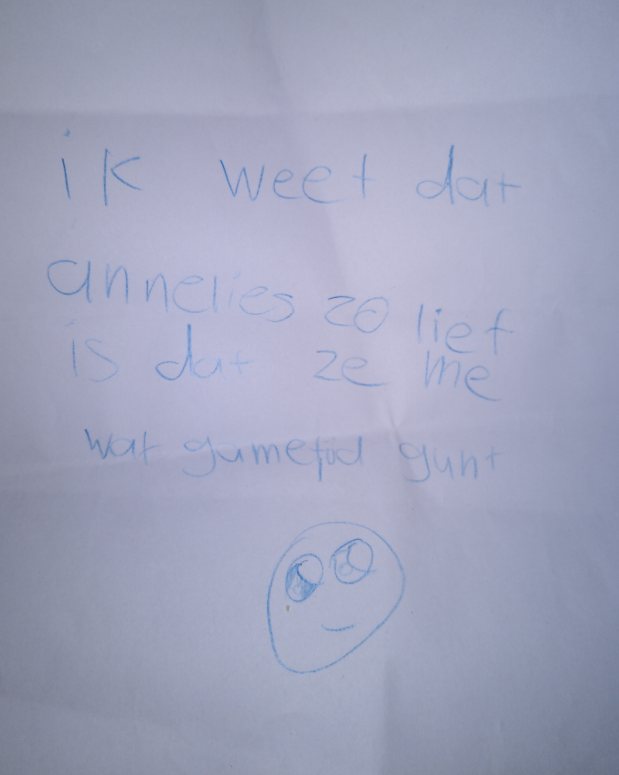 ik weet dat
annelies zo lief
is dat ze me
wat gametijd gunt